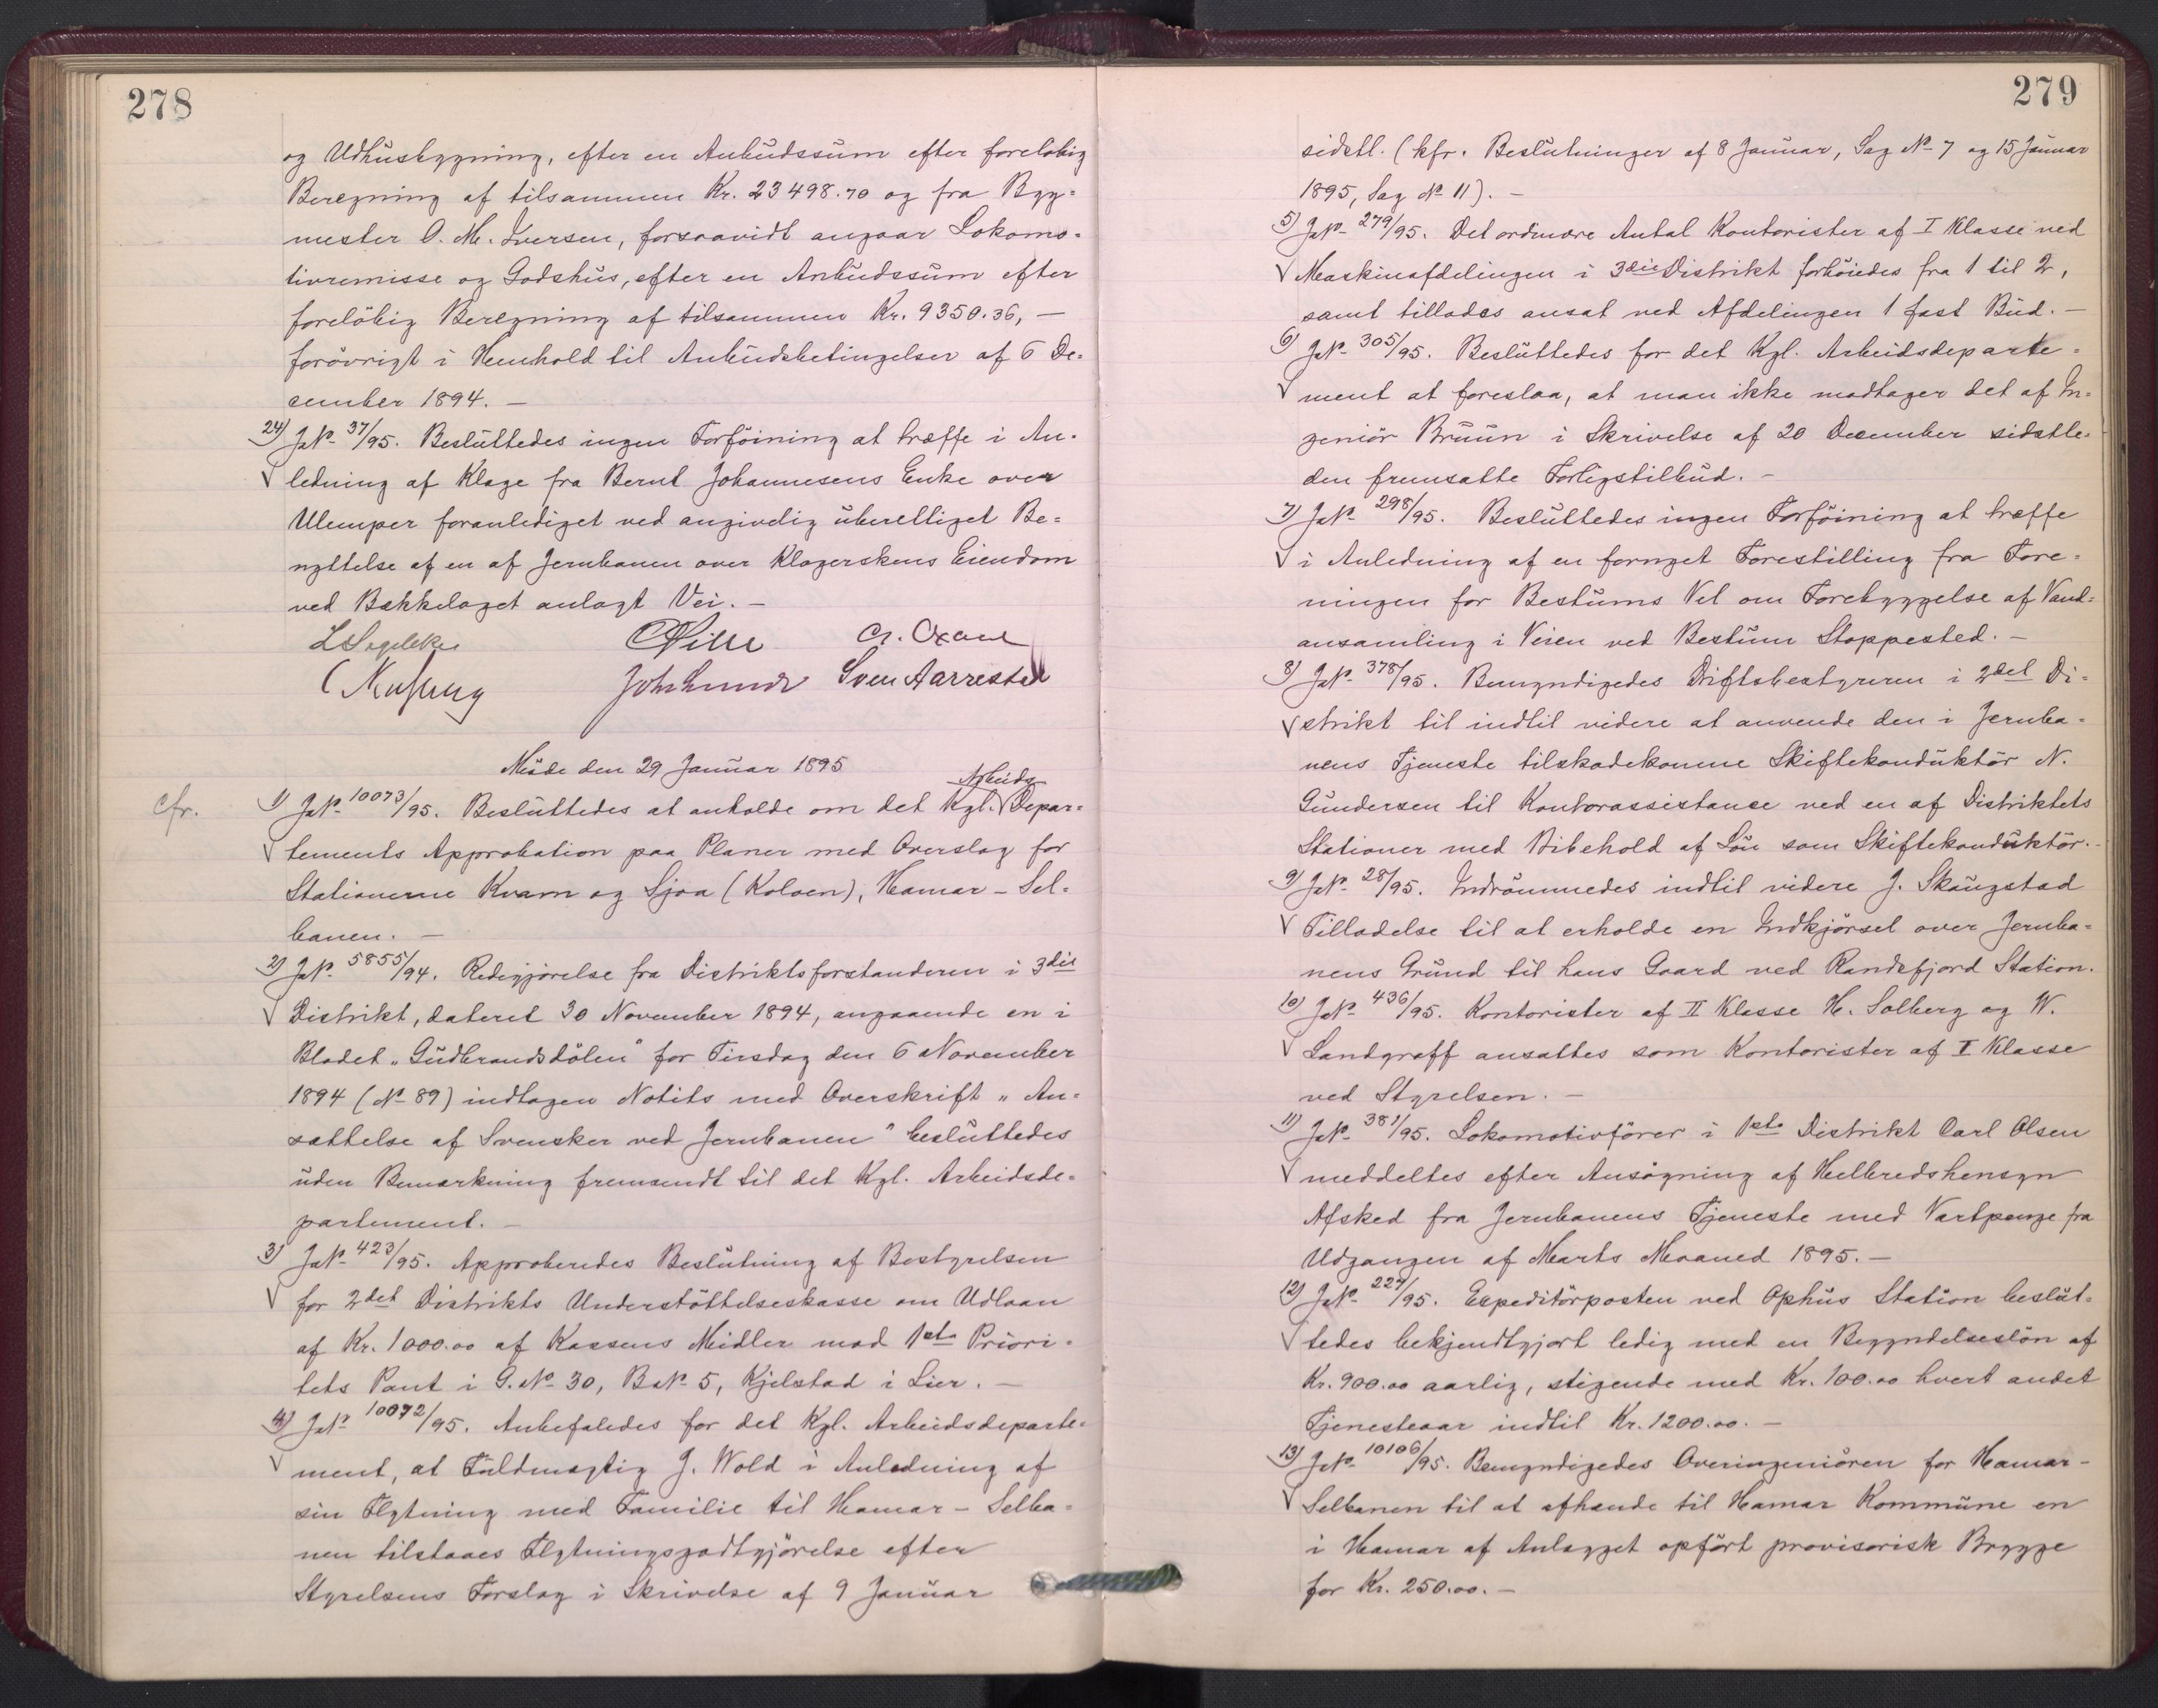 278
og Udhusbygning, efter en Anbudssum efter foreløbig
Beregning af tilsammen Kr. 23498.70 og fra Byg=
mester O. M. Iversen, forsaavidt angaar Lokomo=
tivremisse og Godshus, efter en Anbudssum efter
foreløbig Beregning af tilsammen Kr. 9350.36, —
forøvrigt i Henhold til Anbudsbetingelser af 6 De=
cember 1894. —
24) JNº 37/95. Besluttedes ingen Forføining at træffe i An=
ledning af Klage fra Bernt Johannesens Enke over
Ulemper foranlediget ved angivelig uberettiget Be=
nyttelse af en af Jernbanen over Klagerskens Eiendom
ved Bækkelaget anlagt Vei. —
Joh Lunde Sven Aarrestad
Møde den 29 Januar 1895
Arbeids
cfr. 1) JNº 10073/95. Besluttedes at anholde om det Kgl. Depar=
tements Approbation paa Planer med Overslag for
Stationerne Kvam og Sjoa (Koloen), Hamar – Sel=
banen. —
2) JNº 5855/94. Redegjørelse fra Distriktsforstanderen i 3die
Distrikt, dateret 30 November 1894, angaaende en i
Bladet „Gudbrandsdølen" for Tirsdag den 6 November
1894 (Nº 89) indtagen Notits med Overskrift „An=
sættelse af Svensker ved Jernbanen" besluttedes
uden Bemærkning fremsendt til det Kgl. Arbeidsde=
partement. —
3) JNº 423/95. Approberedes Beslutning af Bestyrelsen
for 2det Distrikts Understøttelseskasse om Udlaan
af Kr. 1000.00 af Kassens Midler mod 1ste Priori=
tets Pant i G. Nº 30, B Nº 5, Kjelstad i Lier. —
4) JNº 10072/95. Anbefaledes for det Kgl. Arbeidsdeparte=
ment, at Fuldmægtig J. Wold i Anledning af
sin Flytning med Familie til Hamar – Selba=
nen tilstaaes Flytningsgodtgjørelse efter
Styrelsens Forslag i Skrivelse af 9 Januar
279
sidstl. (kfr. Beslutninger af 8 Januar, Sag Nº 7 og 15 Januar
1895, Sag Nº 11). —
5) JNº 279/95. Det ordinære Antal Kontorister af I Klasse ved
Maskinafdelingen i 3die Distrikt forhøiedes fra 1 til 2,
samt tillodes ansat ved Afdelingen 1 fast Bud. —
6) JNº 305/95. Besluttedes for det Kgl. Arbeidsdeparte=
ment at foreslaa, at man ikke modtager det af In=
geniør Bruun i Skrivelse af 20 December sidstle=
den fremsatte Forligstilbud. —
7) JNº 298/95. Besluttedes ingen Forføining at træffe
i Anledning af en fornyet Forestilling fra Fore=
ningen for Bestums Vel om Forebyggelse af Vand=
ansamling i Veien ved Bestum Stoppested. —
8) JNº 378/95. Bemyndigedes Driftsbestyreren i 2det Di=
strikt til indtil videre at anvende den i Jernba=
nens Tjeneste tilskadekomne Skiftekonduktør N.
Gundersen til Kontorassistance ved en af Distriktets
Stationer med Bibehold af Løn som Skiftekonduktør. —
9) JNº 28/95. Indrømmedes indtil videre J. Skaugstad
Tilladelse til at erholde en Indkjørsel over Jernba=
nens Grund til hans Gaard ved Randsfjord Station.
10) JNº 436/95. Kontorister af II Klasse H. Solberg og W.
Landgraff ansattes som Kontorister af I Klasse
ved Styrelsen. —
11) JNº 381/95. Lokomotivfører i 1ste Distrikt Carl Olsen
meddeltes efter Ansøgning af Helbredshensyn
Afsked fra Jernbanens Tjeneste med Vartpenge fra
Udgangen af Marts Maaned 1895. —
12) JNº 227/95. Expeditørposten ved Ophus Station beslut=
tedes bekjendtgjort ledig med en Begyndelsesløn af
Kr. 900.00 aarlig, stigende med Kr. 100.00 hvert andet
Tjenesteaar indtil Kr. 1200.00. —
13) JNº 10106/95. Bemyndigedes Overingeniøren for Hamar –
Selbanen til at afhænde til Hamar Kommune en
i Hamar af Anlægget opført provisorisk Brygge
for Kr. 250.00. —